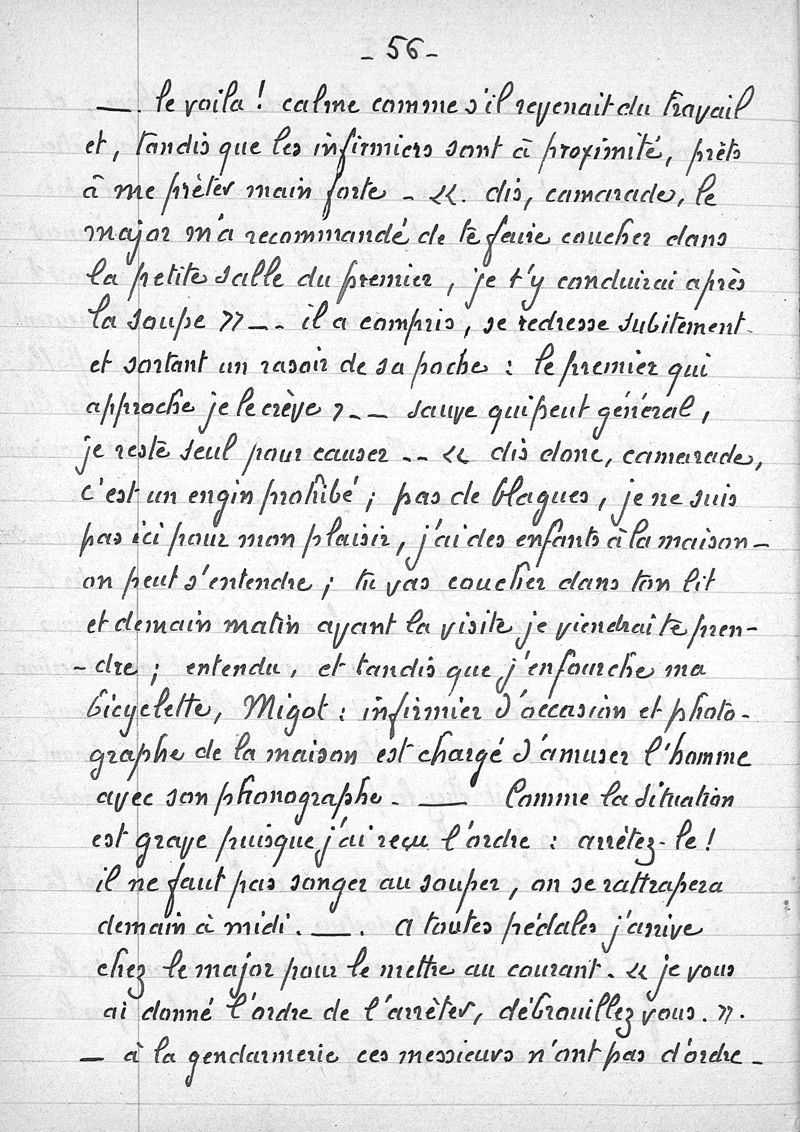 - 56 -
— . le voila ! calme comme s'il revenait du travail
et, tandis que les infirmiers sont à proximité, prêts
à me prèter main forte - «. dis, camarade, le
major m'a recommandé de te faire coucher dans
la petite salle du premier, je t'y conduirai après
la soupe » -. il a compris, se redresse subitement.
et sortant un rasoir de sa poche : le premier qui
approche je le crève ? - - sauve qui peut général,
je reste seul pour causer -- « dis donc, camarade,
c'est un engin prohibé ; pas de blagues, je ne suis
pas ici pour mon plaisir, j'ai des enfants à la maison -
on peut s'entendre ; tu vas coucher dans ton lit
et demain matin avant la visite je viendrai te pren-
- dre ; entendu, et tandis que j'enfourche ma
bicyclette, Migot : infirmier d'occasion et photo-
graphe de la maison est chargé d'amuser l'homme
avec son phonographe. — Comme la situation
est grave puisque j'ai reçu l'ordre : arrêtez-le !
il ne faut pas songer au souper, on se rattrapera
demain à midi. — . A toutes pédales j'arrive
chez le major pour le mettre au courant. « je vous
ai donné l'ordre de l'arrèter, débrouillez vous. ».
— à la gendarmerie ces messieurs n'ont pas d'ordre -